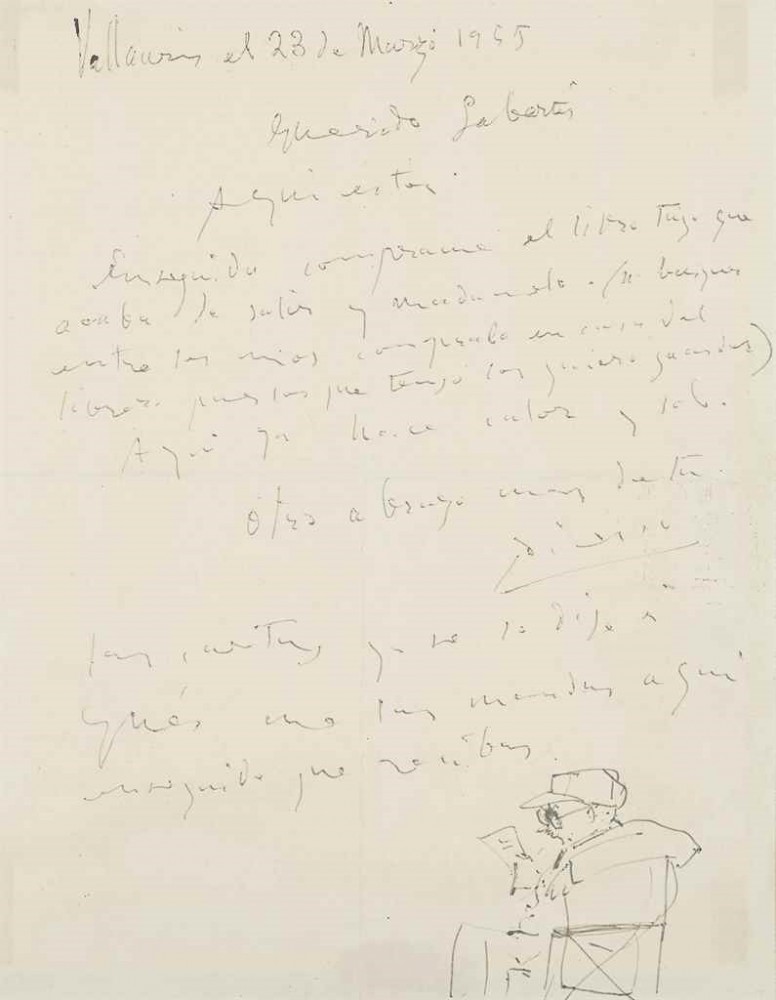 Vallauris el 23 de Marzo 1955
Querido Sabartés
Aqui estoy.
Enseguida comprame el libro tuyo que
acaba de salir y mandamelo. (No busques
entre los mios compralo en casa del
librero pues los que tengo los quiero guardar)
Aqui ya hace calor y sol.
Otro abrazo mas de tu
Picasso
las cartas ya se lo dije a
Inés me las mandas aqui
enseguida que recibas